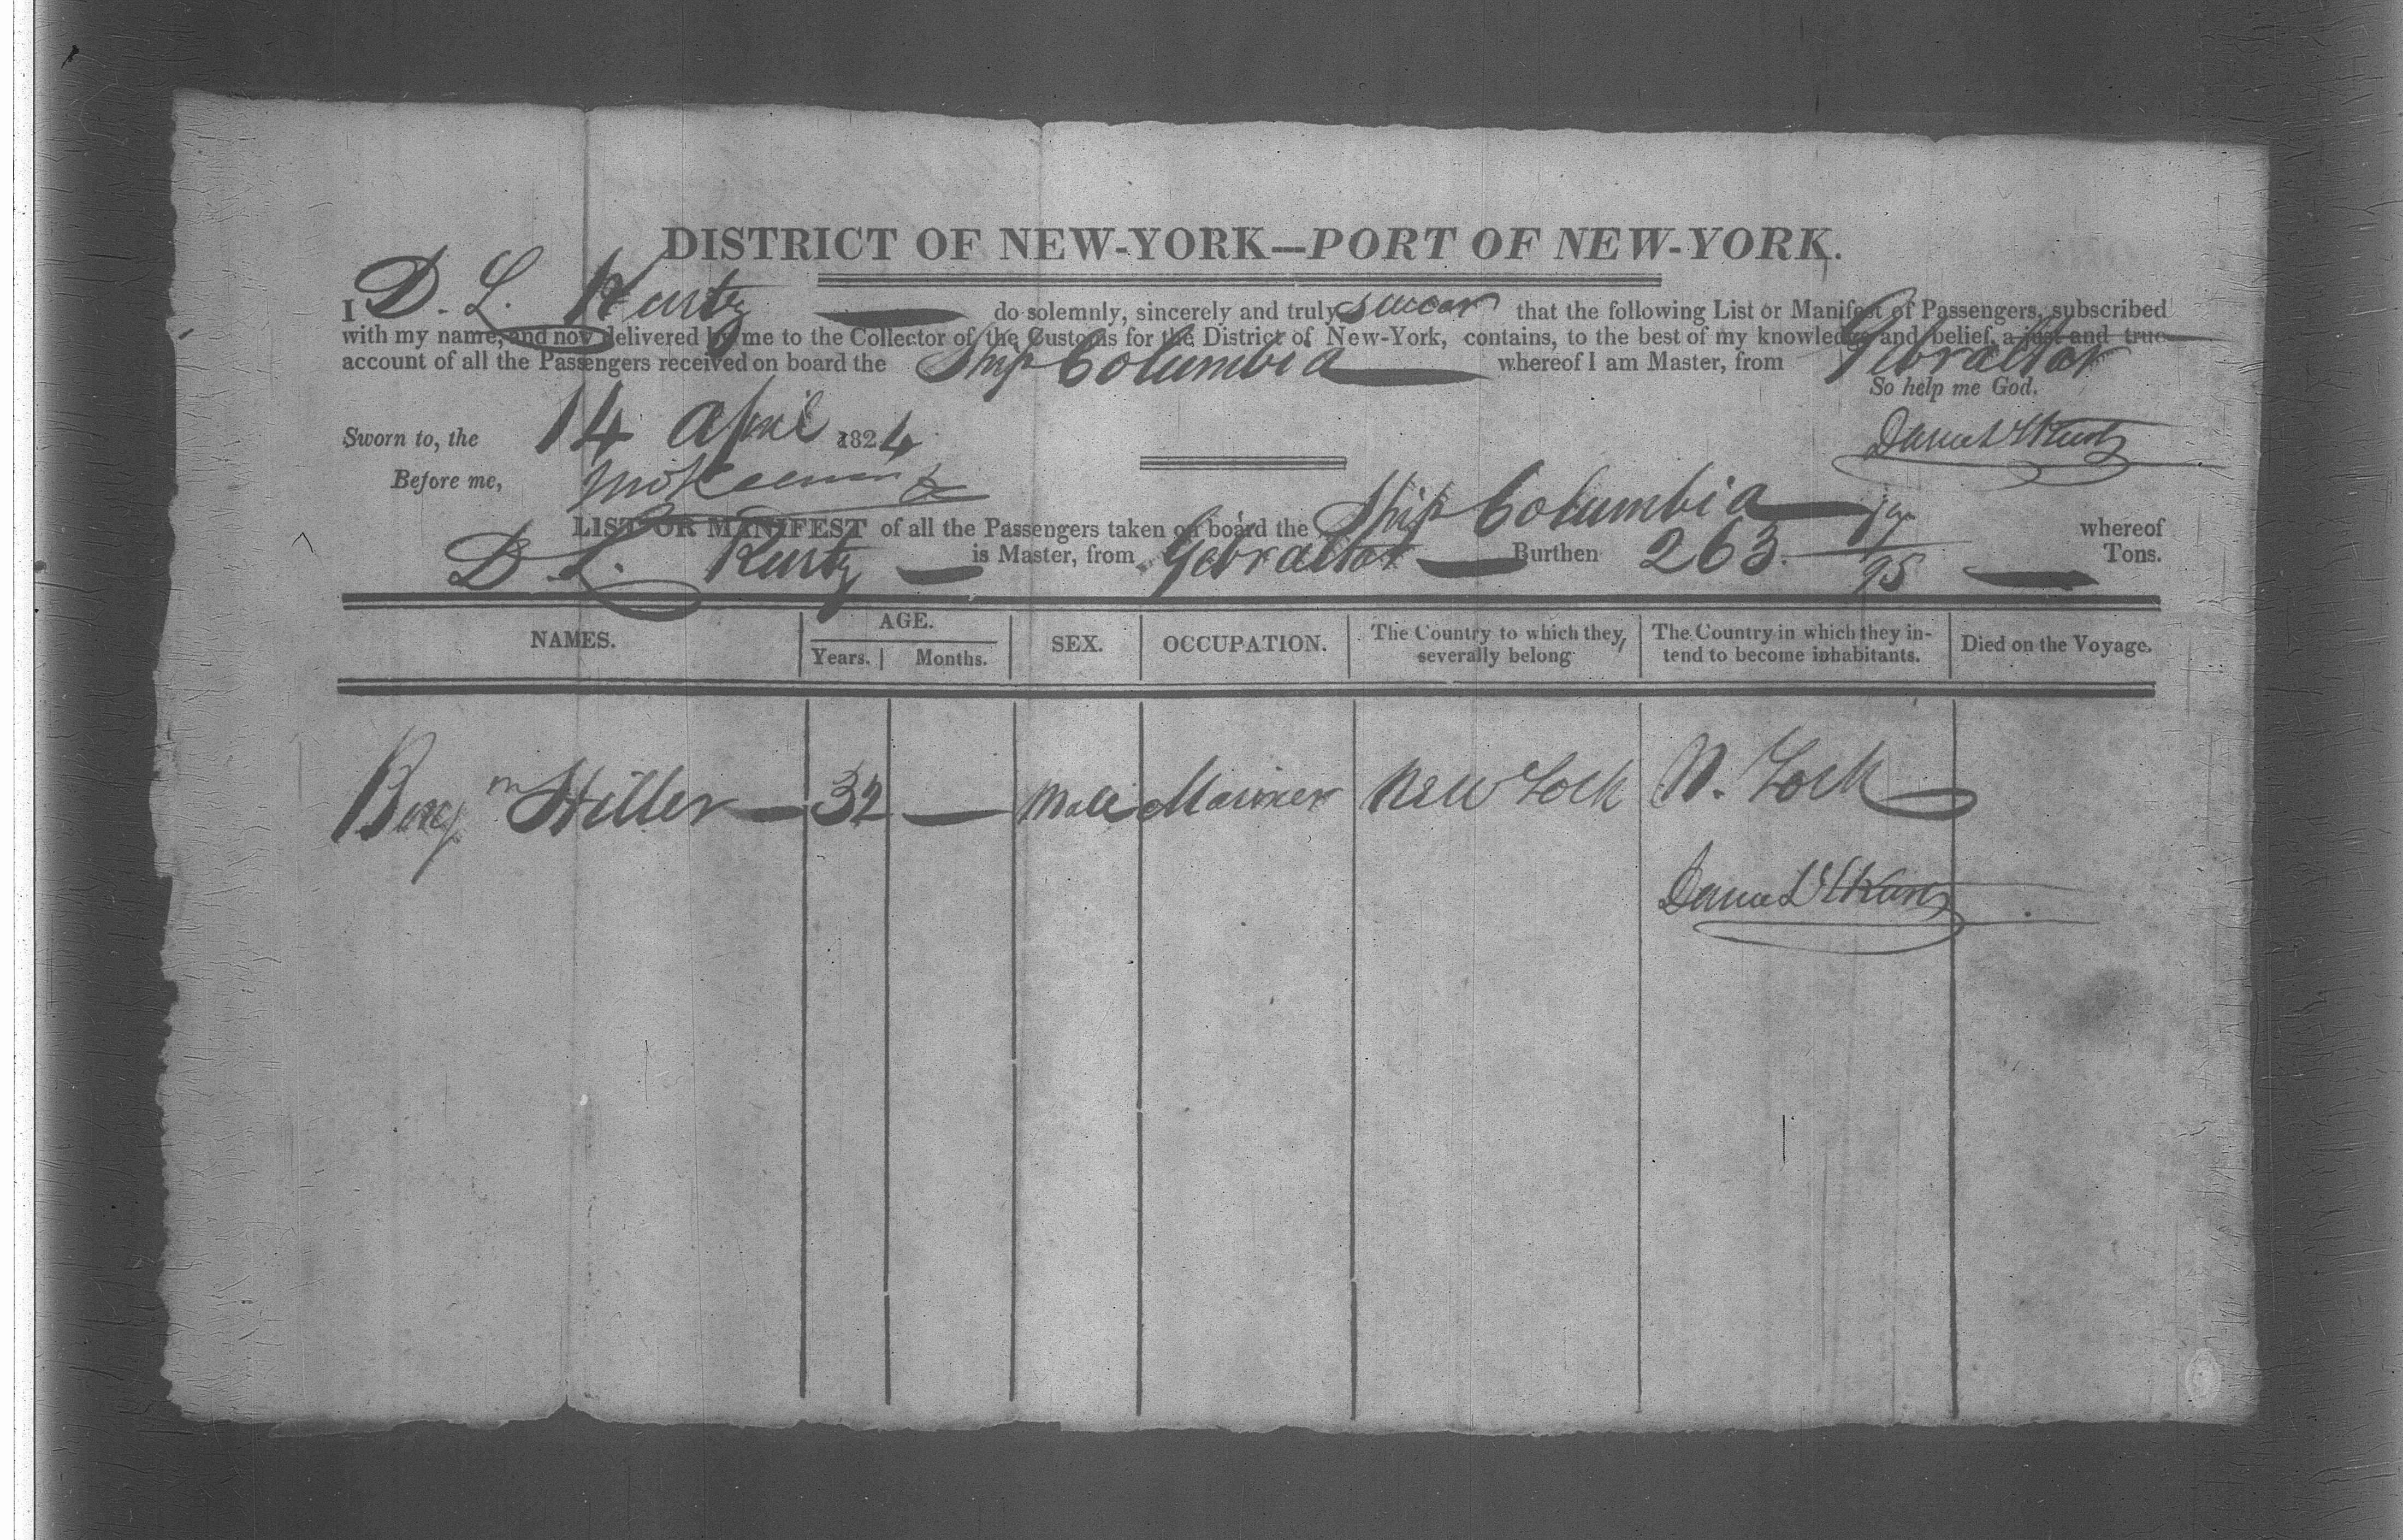 DISTRICT OF NEW-YORK—PORT OF NEW-YORK.
I D. L. Kurtz do solemnly, sincerely and truly swear that the following List or Manifest of Passengers, subscribed
with my name, and now delivered by me to the Collector of the Customs for the District of New-York, contains, to the best of my knowledge and belief, a just and true
account of all the Passengers received on board the Ship Columbia whereof I am Master, from Gibraltar
So help me God.
Sworn to, the 14 April 1824
Daniel L Kurtz
Before me,
LIST OR MANIFEST of all the Passengers taken on board the Ship Columbia whereof
D. L. Kurtz is Master, from Gibraltar Burthen 263 /95 Tons.
NAMES. AGE. Years. Months. SEX. OCCUPATION. The Country to which they severally belong The Country in which they intend to become inhabitants. Died on the Voyage.
Benjm Hiller — 32 — Male Mariner New York N. York
Daniel L Kurtz